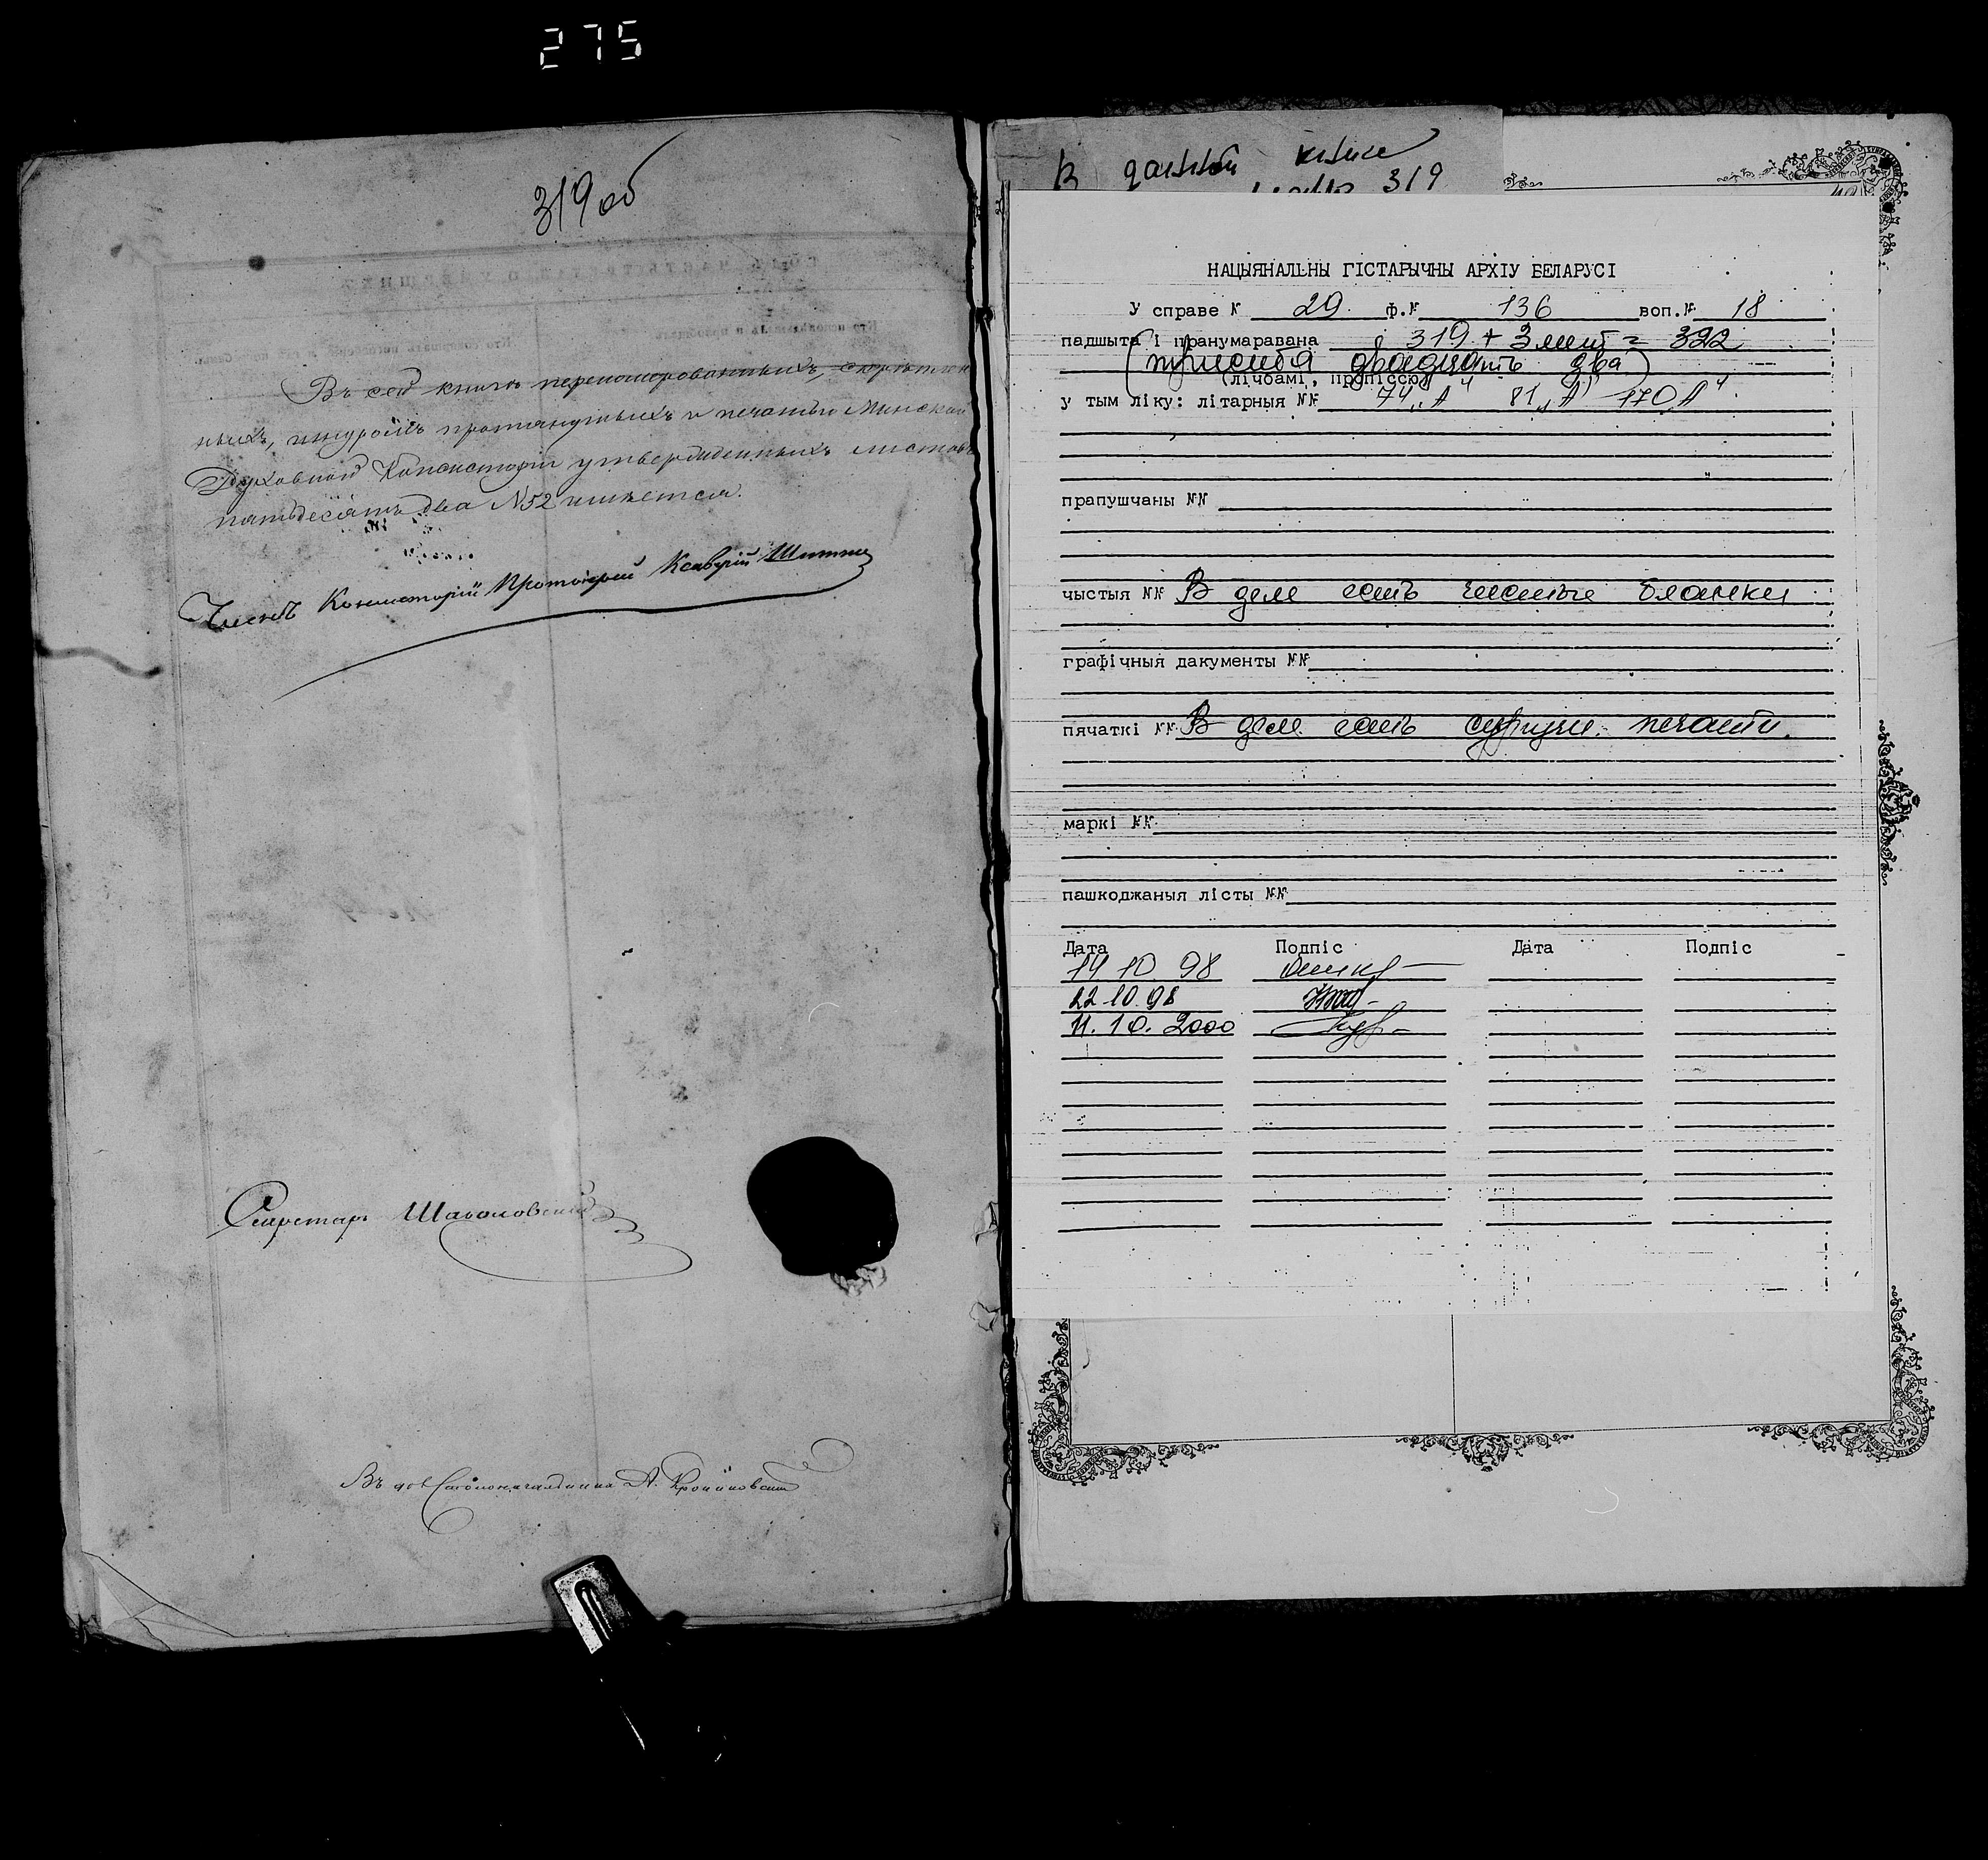 275
319 об
Въ сей книгѣ перенумерованныхъ, скрѣплен
ныхъ, шнуромъ протянутыхъ и печатью Минской
Духовной Консисторіи утвержденныхъ листовъ
пятьдесятъ два №52 имѣется.
Членъ Консисторіи Протоіерей
Секретарь
Въ дол. Столоначальника А.
В данной книге
319
НАЦЫЯНАЛЬНЫ ГІСТАРЫЧНЫ АРХІУ БЕЛАРУСІ
У справе № 29 ф.№ 136 воп.№ 18
падшыта і пранумаравана 319 + 3 лит = 322
(триста двадцать два)
(лічбамі, пропіссю)
у тым ліку: літарныя №№ 74 „А" 81 „А" 170 „А"
прапушчаны №№
чыстыя №№ В деле есть чистые бланки
графічныя дакументы №№
пячаткі №№ В деле есть сургучн. печати.
маркі №№
пашкоджаныя лісты №№
Дата Подпіс Дата Подпіс
14 10 98
22.10.98
11.10.2000